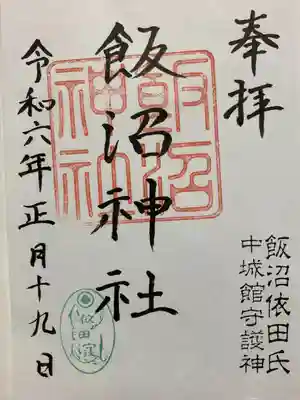 奉拝
飯沼依田氏
中城館守護神
飯沼神社
飯沼
神社
令和六年正月十九日
依田窪